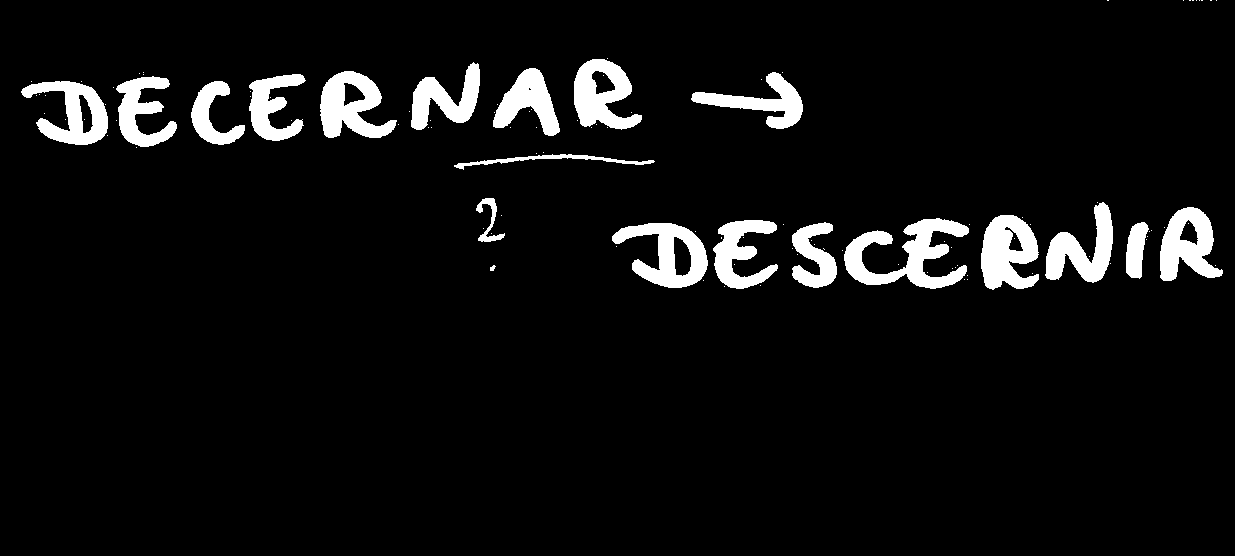 DECERNAR →
?
DESCERNIR